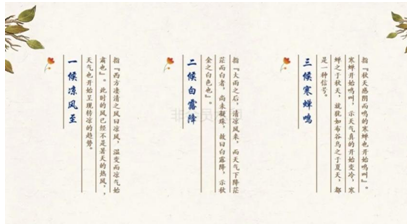 一候凉风至
指『西方凄清之风曰凉风,温变而凉气始
肃也』。此时的风已经不是暑天的热风,
天气也开始呈现转凉的趋势。
二候白露降
指『大雨之后,清凉风来,而天气下降茫
茫而白者,尚未凝珠,故曰白露降,示秋
金之白色也』。
三候寒蝉鸣
指『秋天感阴而鸣的寒蝉也开始鸣叫』。
寒蝉开始鸣叫,示天气真的开始变冷,寒
蝉之于秋天,就犹如布谷鸟之于夏天,都
是一种信号。